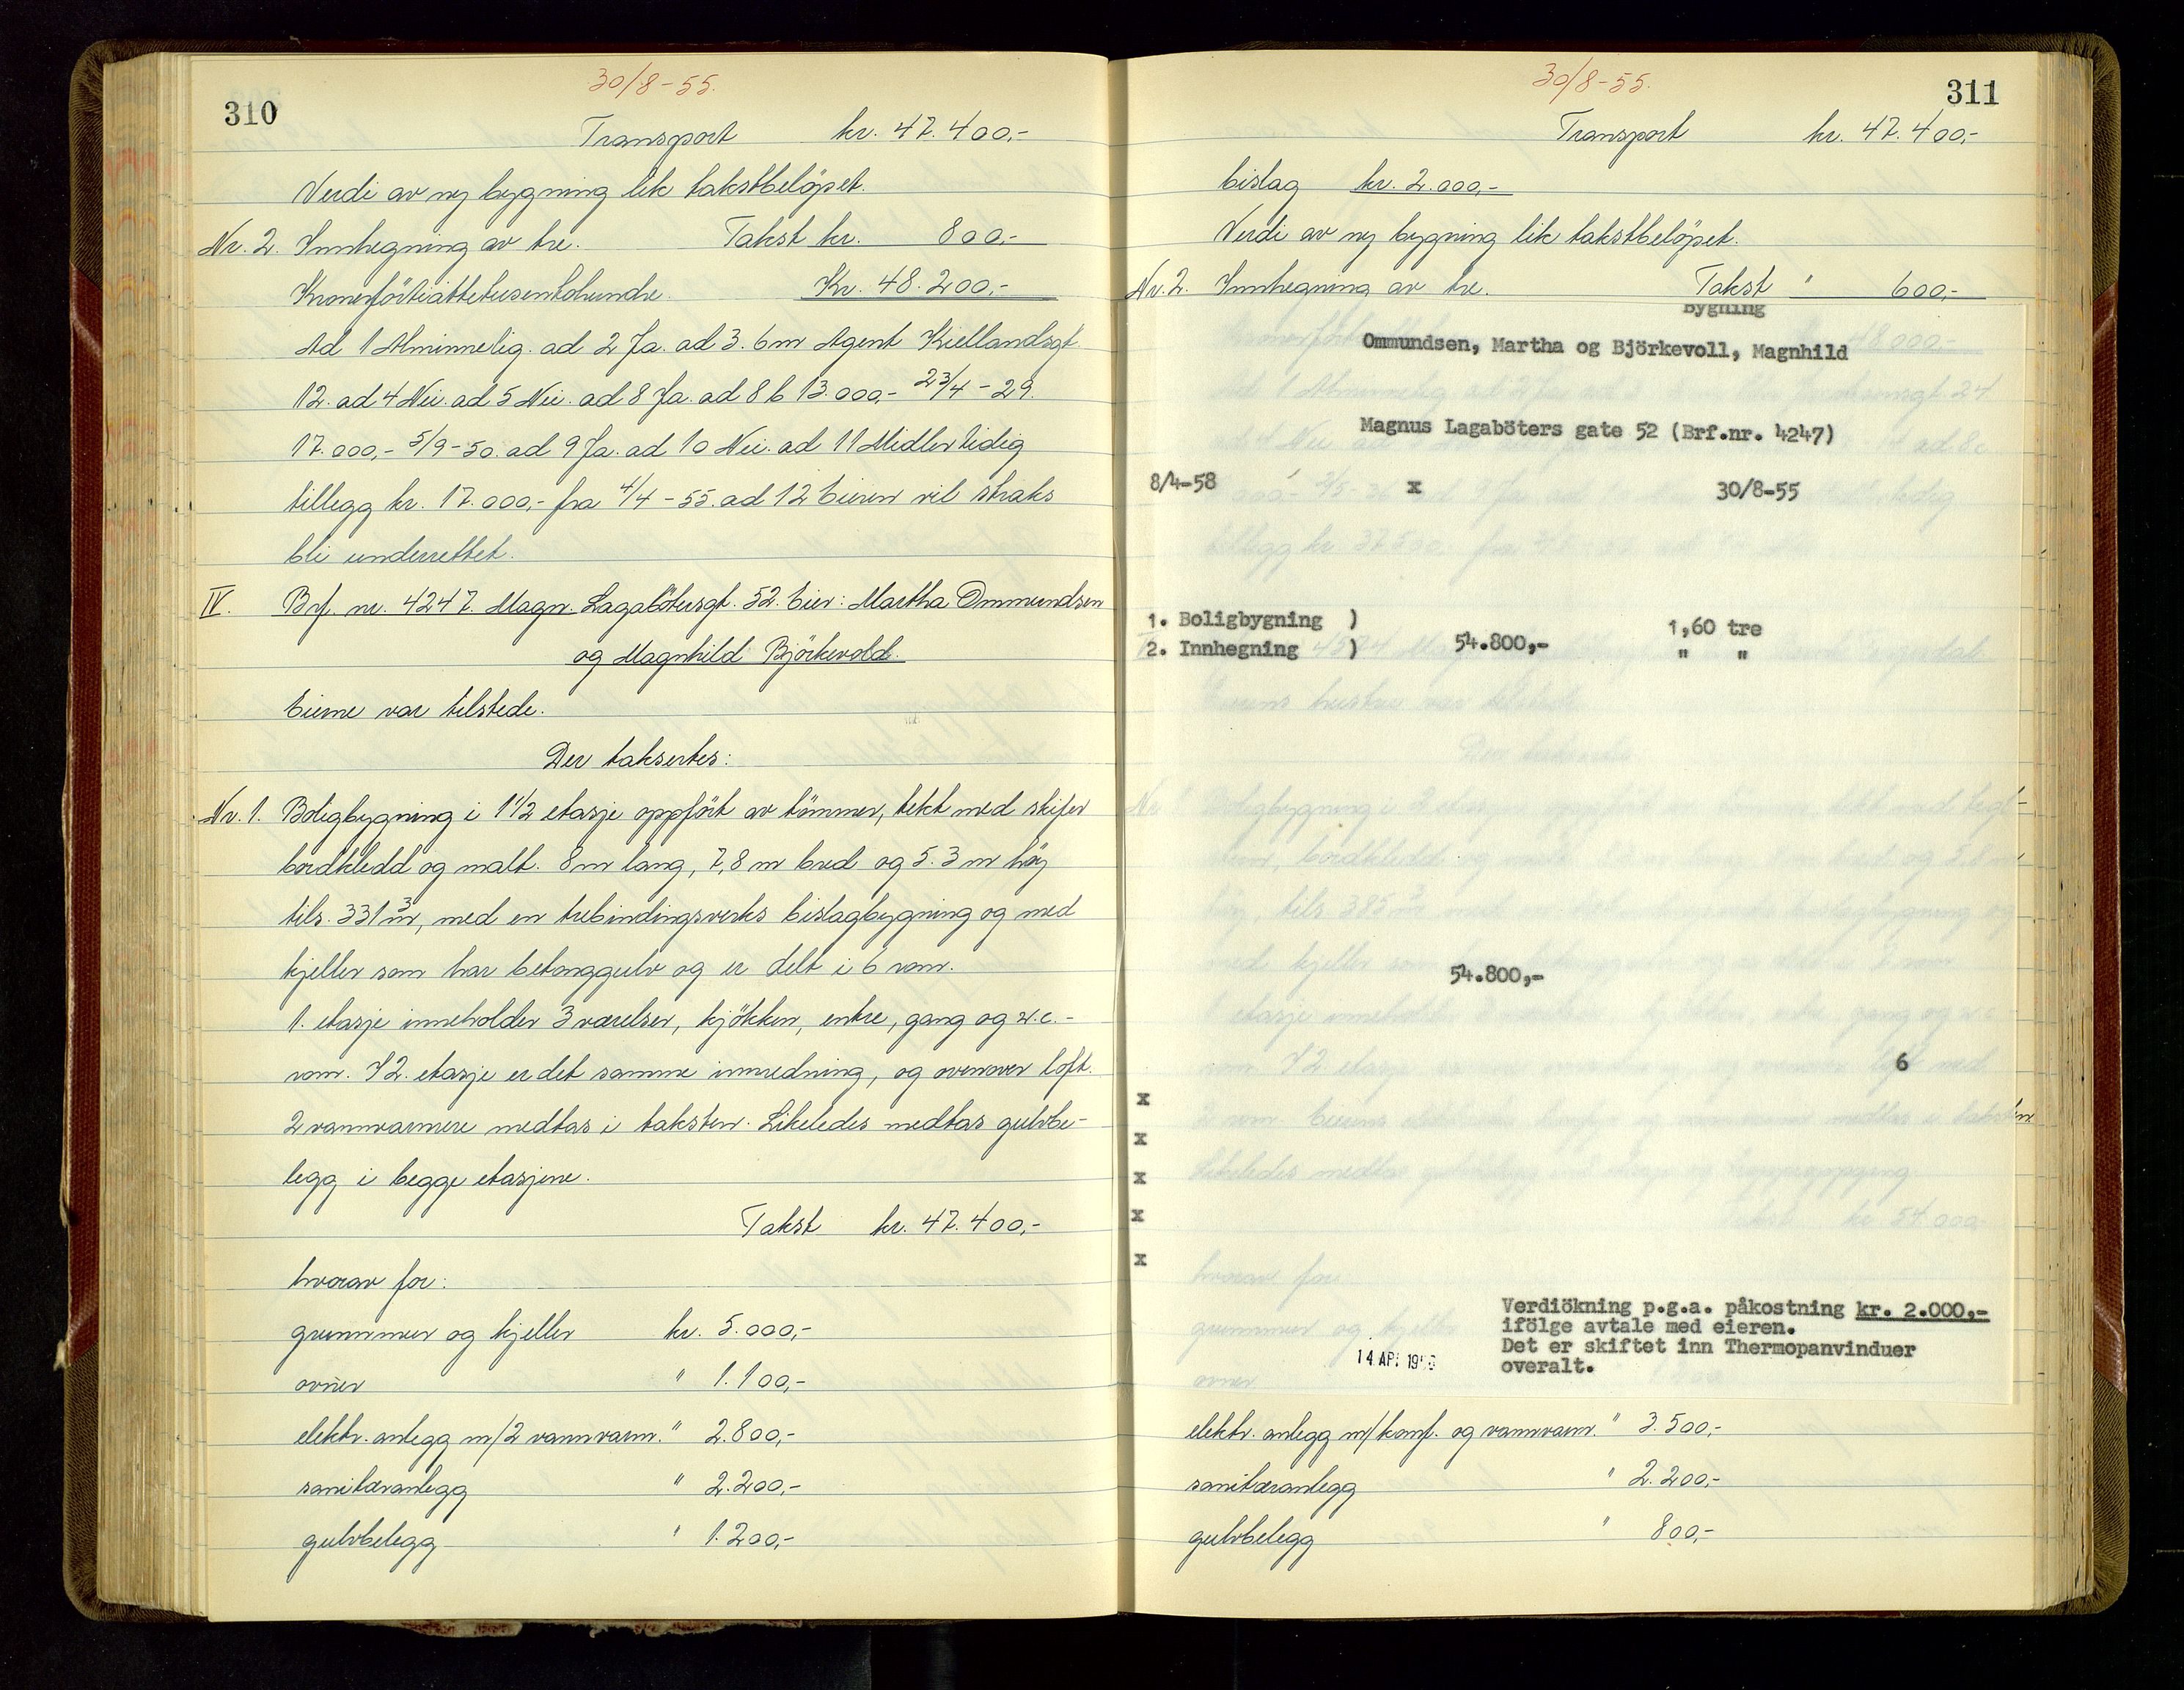 310
30/8-55.
Transport kr. 47.400,-
Verdi av ny bygning lik takstbelöpet.
Nr. 2. Innhegning av tre. Takst kr. 800,-
Kronerförtiåttetusentohundre. Kr. 48.200,-
Ad 1 Alminnelig. ad 2 Ja. ad 3. 6 m Agent Kiellandsgt.
12. ad 4 Nei. ad 5 Nei. ad 8 Ja. ad 8 b 13.000,- 23/4-29.
17.000,- 5/9-50. ad 9 Ja. ad 10 Nei. ad 11 Midlertidig
tillegg kr. 17.000,- fra 4/4-55. ad 12 Eieren vil straks
bli underrettet.
IV. Brf. nr. 4247. Magn. Lagabötersgt. 52. Eier: Martha Ommundsen
og Magnhild Björkevold.
Eierne var tilstede.
Der taksertes:
Nr. 1. Boligbygning i 1 1/2 etasje oppfört av tömmer, tekt med skifer
bordkledd og malt. 8 m lang, 7,8 m bred og 5.3 m höy
tils. 331 m³, med en trebindingsverks bislagbygning og med
kjeller som har betonggulv og er delt i 6 rom.
1. etasje inneholder 3 værelser, kjökken, entre, gang og w.c.-
rom. I 2. etasje er det samme innredning, og ovenover loft.
2 vannvarmere medtas i taksten. Likeledes medtas gulvbe-
legg i begge etasjene.
Takst kr. 47.400,-
hvorav for:
grunnmur og kjeller kr. 5.000,-
ovner " 1.100,-
elektr. anlegg m/2 vannvarm. " 2.800,-
sanitæranlegg " 2.200,-
gulvbelegg " 1.200,-
311
30/8-55.
Transport kr. 47.400,-
bislag kr. 2.000,-
Verdi av ny bygning lik takstbelöpet.
Nr. 2. Innhegning av tre. Takst " 600,-
bygning
Ommundsen, Martha og Björkevoll, Magnhild
Magnus Lagaböters gate 52 (Brf.nr. 4247)
8/4-58 x 30/8-55
1. Boligbygning ) 1,60 tre
2. Innhegning ) 54.800,- " "
54.800,-
6
x
x
x
x
x
Verdiökning p.g.a. påkostning kr. 2.000,-
ifölge avtale med eieren.
Det er skiftet inn Thermopanvinduer
overalt.
14 AP
elektr. anlegg m/komf. og vannvarm. " 3.500,-
sanitæranlegg " 2.200,-
gulvbelegg " 800,-